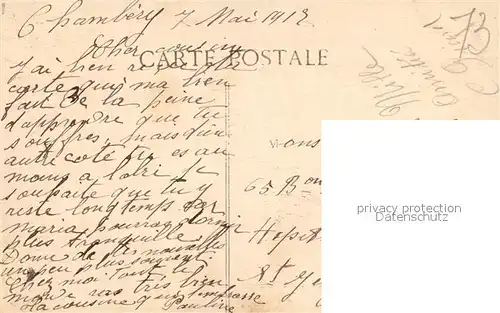 Chambéry 7 Mai 1915
Cher cousin
CARTE POSTALE
J'ai bien reçu ta
carte qui m'a bien
fait de la peine
d'apprendre que tu
souffres, mais d'un
autre coté tu es au
moins a l'abri je
souhaite que tu y
reste longtemps car
Maria pourra dormir
plus tranquille
Donne de tes nouvelles
un peu plus souvent
Chez moi tout le
monde va très bien
Ta cousine qui t'embrasse
Pauline
73
Mlle
65 Bon
Hopit
St
privacy protection
Datenschutz